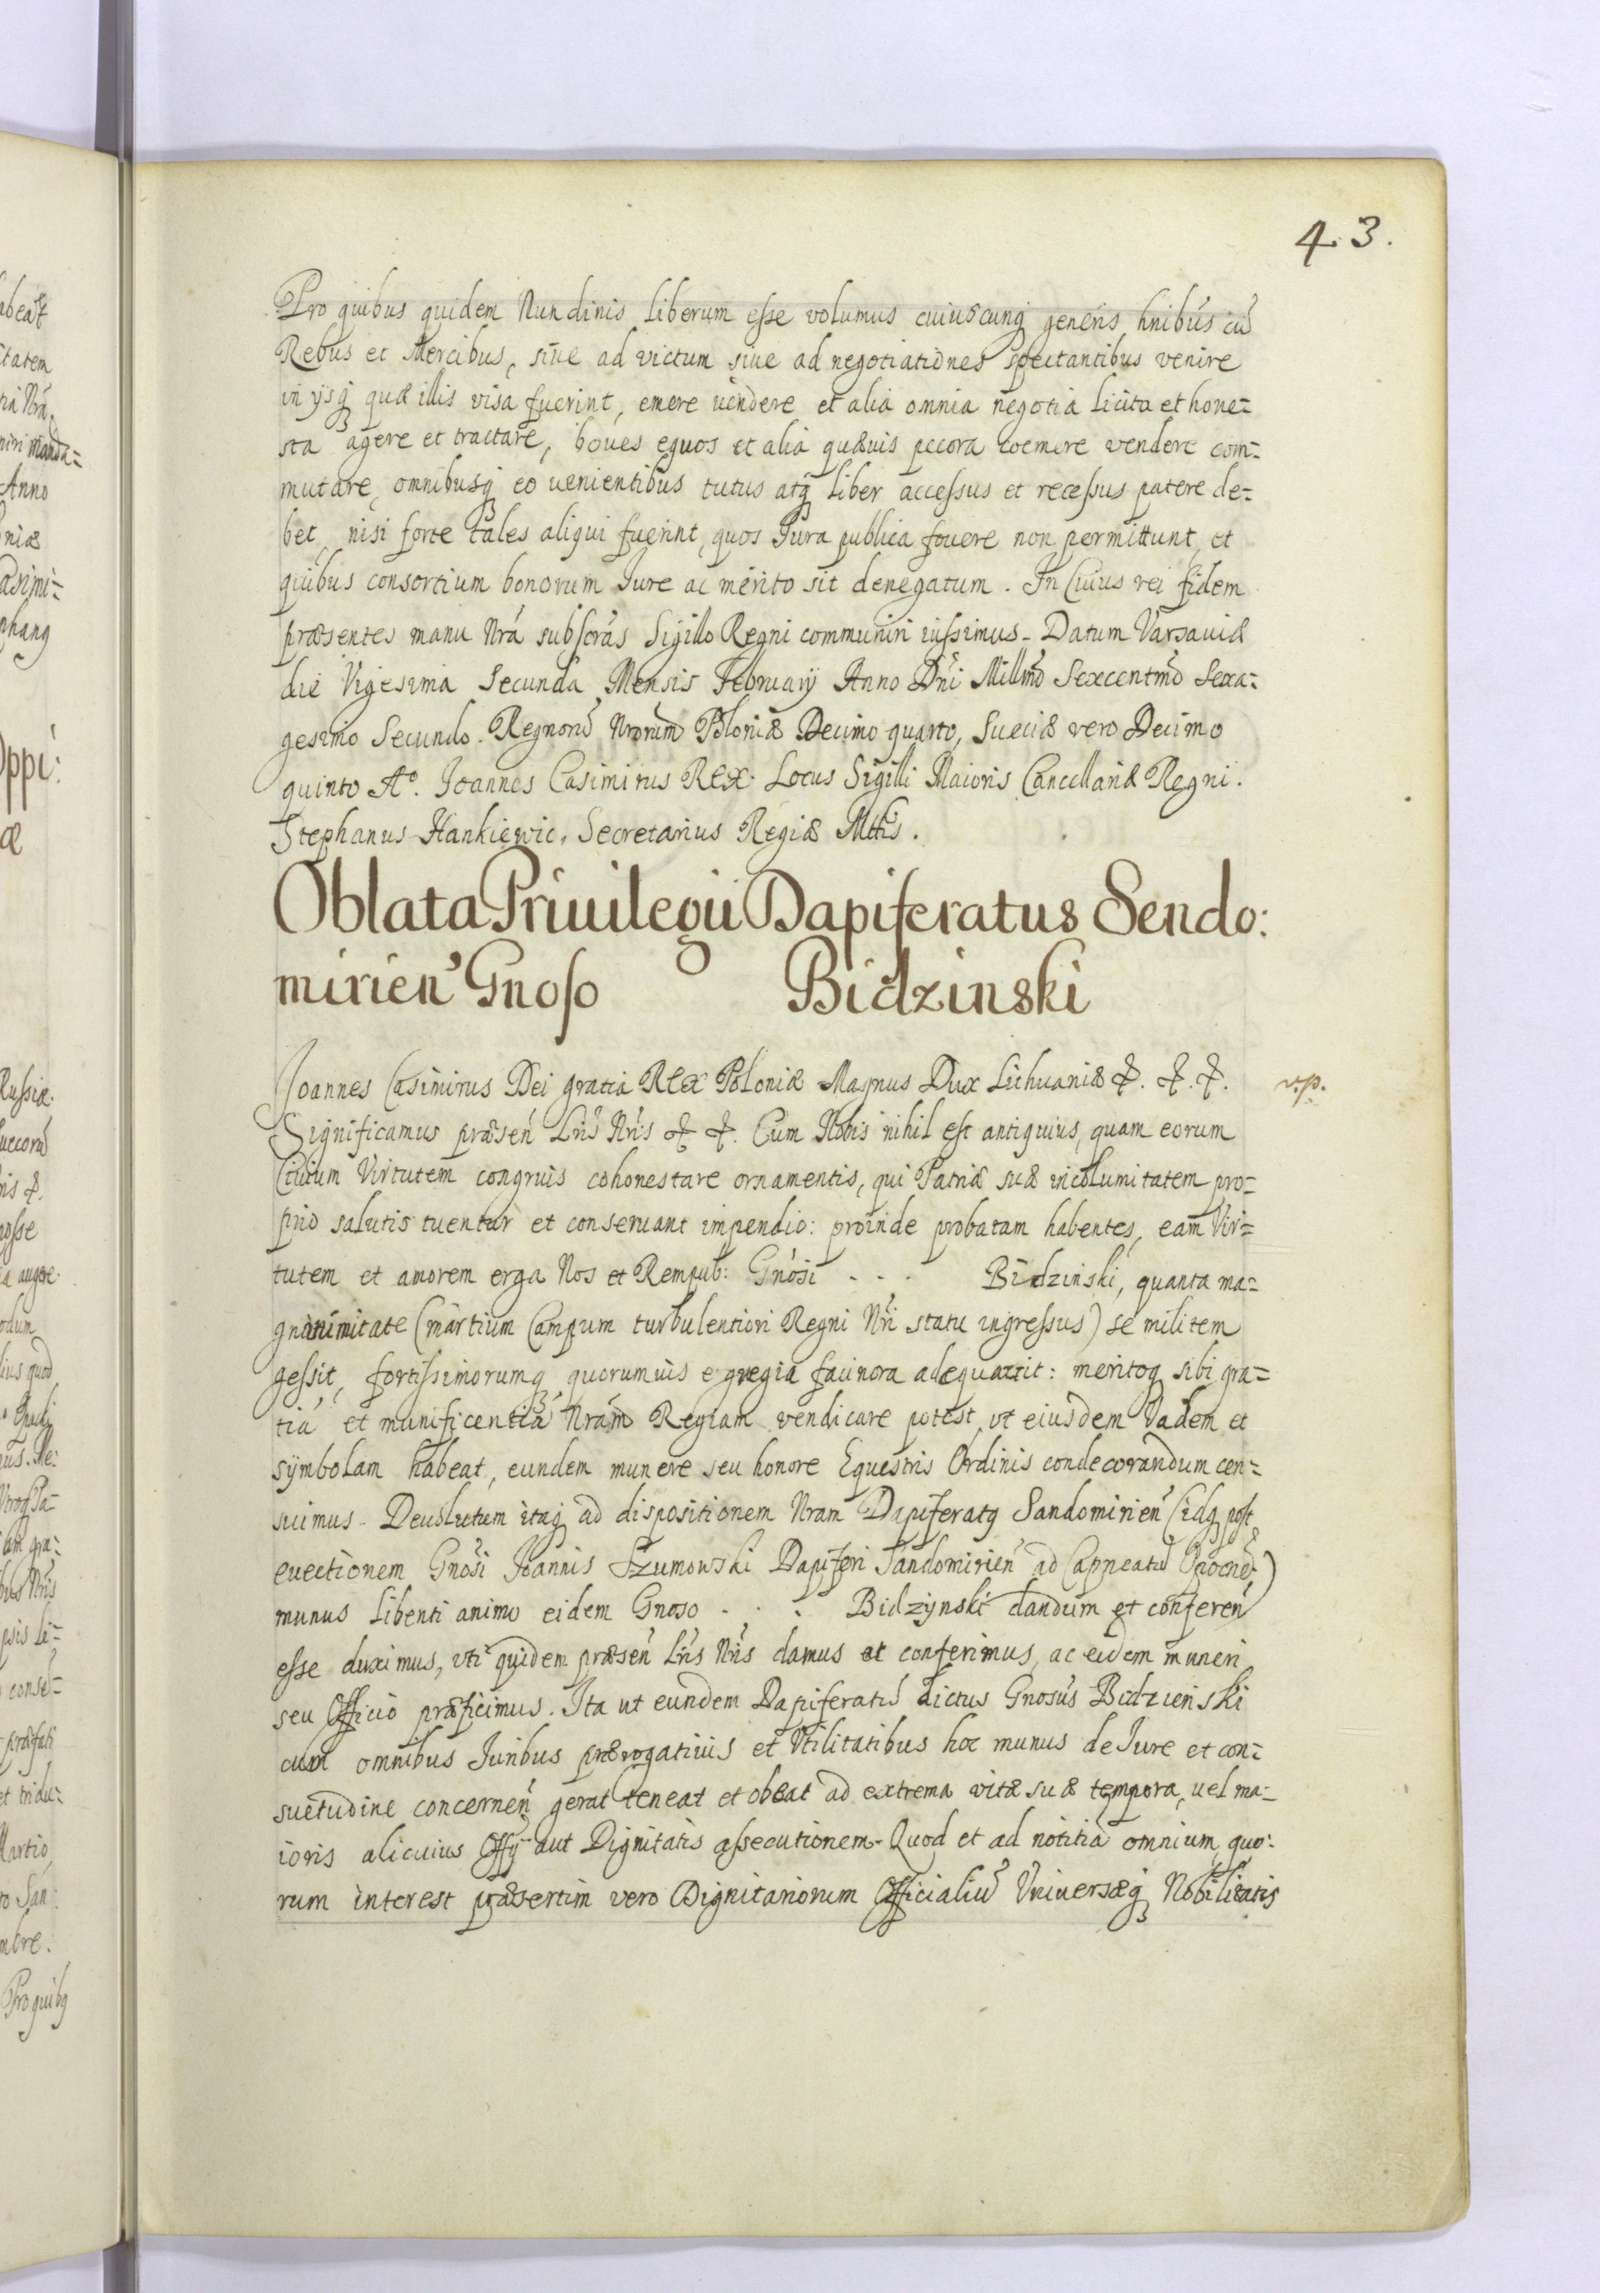 43.
Pro quibus quidem Nundinis liberum esse volumus cuiuscunq generis hnibus cũ
Rebus et Mercibus, siue ad victum siue ad negotiationes spectantibus venire
in ijsq quæ illis visa fuerint, emere uendere et alia omnia negotia licita et hone=
sta agere et tractare, boues equos et alia quæuis pecora coemere vendere com=
mutare, omnibusq eo uenientibus tutus atq liber accessus et recessus patere de=
bet, nisi forte tales aliqui fuerint, quos Jura publica fouere non permittunt, et
quibus consortium bonorum Jure ac merito sit denegatum. In Cuius rei fidem
præsentes manu Nrã subscrãs Sigillo Regni communiri iussimus. Datum Varsauiæ
die Vigesima Secunda Mensis Februarij Anno Dñi Millmo Sexcentmo Sexa=
gesimo Secundo. Regnorũ Nrorum Poloniæ Decimo quarto, Sueciæ vero Decimo
quinto Aº. Joannes Casimirus REX. Locus Sigilli Maioris Cancellariæ Regni.
Stephanus Hankiewic, Secretarius Regiæ Mttis.
Oblata Priuilegii Dapiferatus Sendo:
mirien̉ Gnoso Bidzinski
Joannes Casimirus Dei gratia REX Poloniæ Magnus Dux Lithuaniæ &. &. &.
Significamus præsen̉ Lris Nris & &. Cum Nobis nihil est antiquius, quam eorum
Ciuium Virtutem congruis cohonestare ornamentis, qui Patriæ suæ incolumitatem pro=
prio salutis tuentur et conseruant impendio: proinde probatam habentes, eam Vir=
tutem et amorem erga Nos et Rempub: Gnosi . . . Bidzinski, quanta ma=
gnanimitate (martium Campum turbulentiori Regni Nri statu ingressus) se militem
gessit, fortissimorumq quorumuis egregia facinora adequarit: meritoq sibi gra=
tiã et munificentiã Nrãm Regiam vendicare potest, ut eiusdem Vadem et
symbolam habeat, eundem munere seu honore Equestris Ordinis condecorandum cen=
suimus. Deuolutum itaq ad dispositionem Nram Dapiferatq Sandomirien̉ (idq post
euectionem Gnosi Joannis Szumowski Dapiferi Sandomirien̉ ad Capneatũ Opocneñ)
munus libenti animo eidem Gnoso . . . Bidzynski dandum et conferen̉
esse duximus, uti quidem præsen̉ Lris Nris damus et conferimus, ac eidem muneri
seu Officio præficimus. Ita ut eundem Dapiferatũ dictus Gnosus Bidzienski
cum omnibus Juribus prærogatiuis et Vtilitatibus hoc munus de Jure et con=
suetudine concernen̉ gerat teneat et obeat ad extrema vitæ suæ tempora, uel ma=
ioris alicuius Offij aut Dignitatis assecutionem. Quod et ad notitiã omnium quo:
rum interest præsertim vero Dignitariorum Officialiũ Vniuersæq Nobilitatis
v.p.